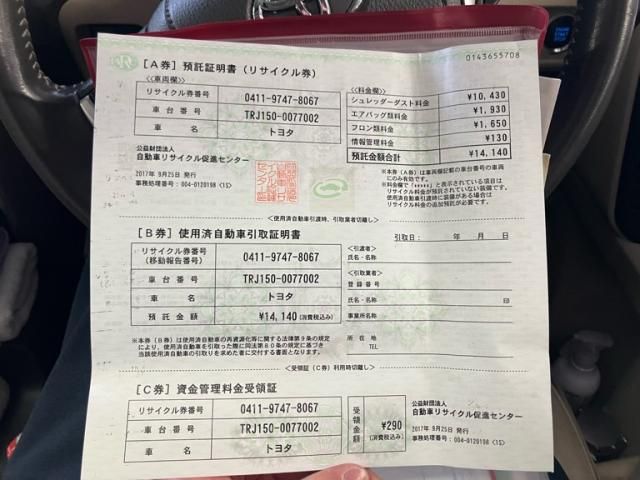 0143655708
[A券] 預託証明書 (リサイクル券)
<<車両欄>>
リサイクル券番号 0411-9747-8067
車台番号 TRJ150-0077002
車名 トヨタ
<<料金欄>>
シュレッダーダスト料金 ¥10,430
エアバッグ類料金 ¥1,930
フロン類料金 ¥1,650
情報管理料金 ¥130
預託金額合計 ¥14,140
公益財団法人
自動車リサイクル促進センター
2017年 9月25日 発行
事務処理番号: 004-0120198 (1S)
※本券(A券)は車両欄記載の車台番号の車両
にのみ有効です。
※料金欄で「*****」と表示されている項目は
リサイクル料金が預託されていない装備です。
使用済自動車引渡時に装備がある場合は
リサイクル料金の追加預託が必要です。
<使用済自動車引渡時、引取業者切離し>
[B券] 使用済自動車引取証明書
引取日: 年 月 日
リサイクル券番号
(移動報告番号) 0411-9747-8067
車台番号 TRJ150-0077002
車名 トヨタ
預託金額 ¥14,140 (消費税込み)
<引渡者>
氏名・名称
<引取業者>
登録番号
氏名・名称 印
事業所名称
所在地
TEL
※本券(B券)は使用済自動車の再資源化等に関する法律第9条の規定
により、使用済自動車を引取った際に同法第80条の規定に基づき
当該使用済自動車の引取りを求めた者に交付する書面となります。
<受領証(C券)利用時切離し>
[C券] 資金管理料金受領証
リサイクル券番号 0411-9747-8067
車台番号 TRJ150-0077002
車名 トヨタ
受領金額 ¥290 (消費税込み)
公益財団法人
自動車リサイクル促進センター
2017年 9月25日 発行
事務処理番号: 004-0120198 (1S)